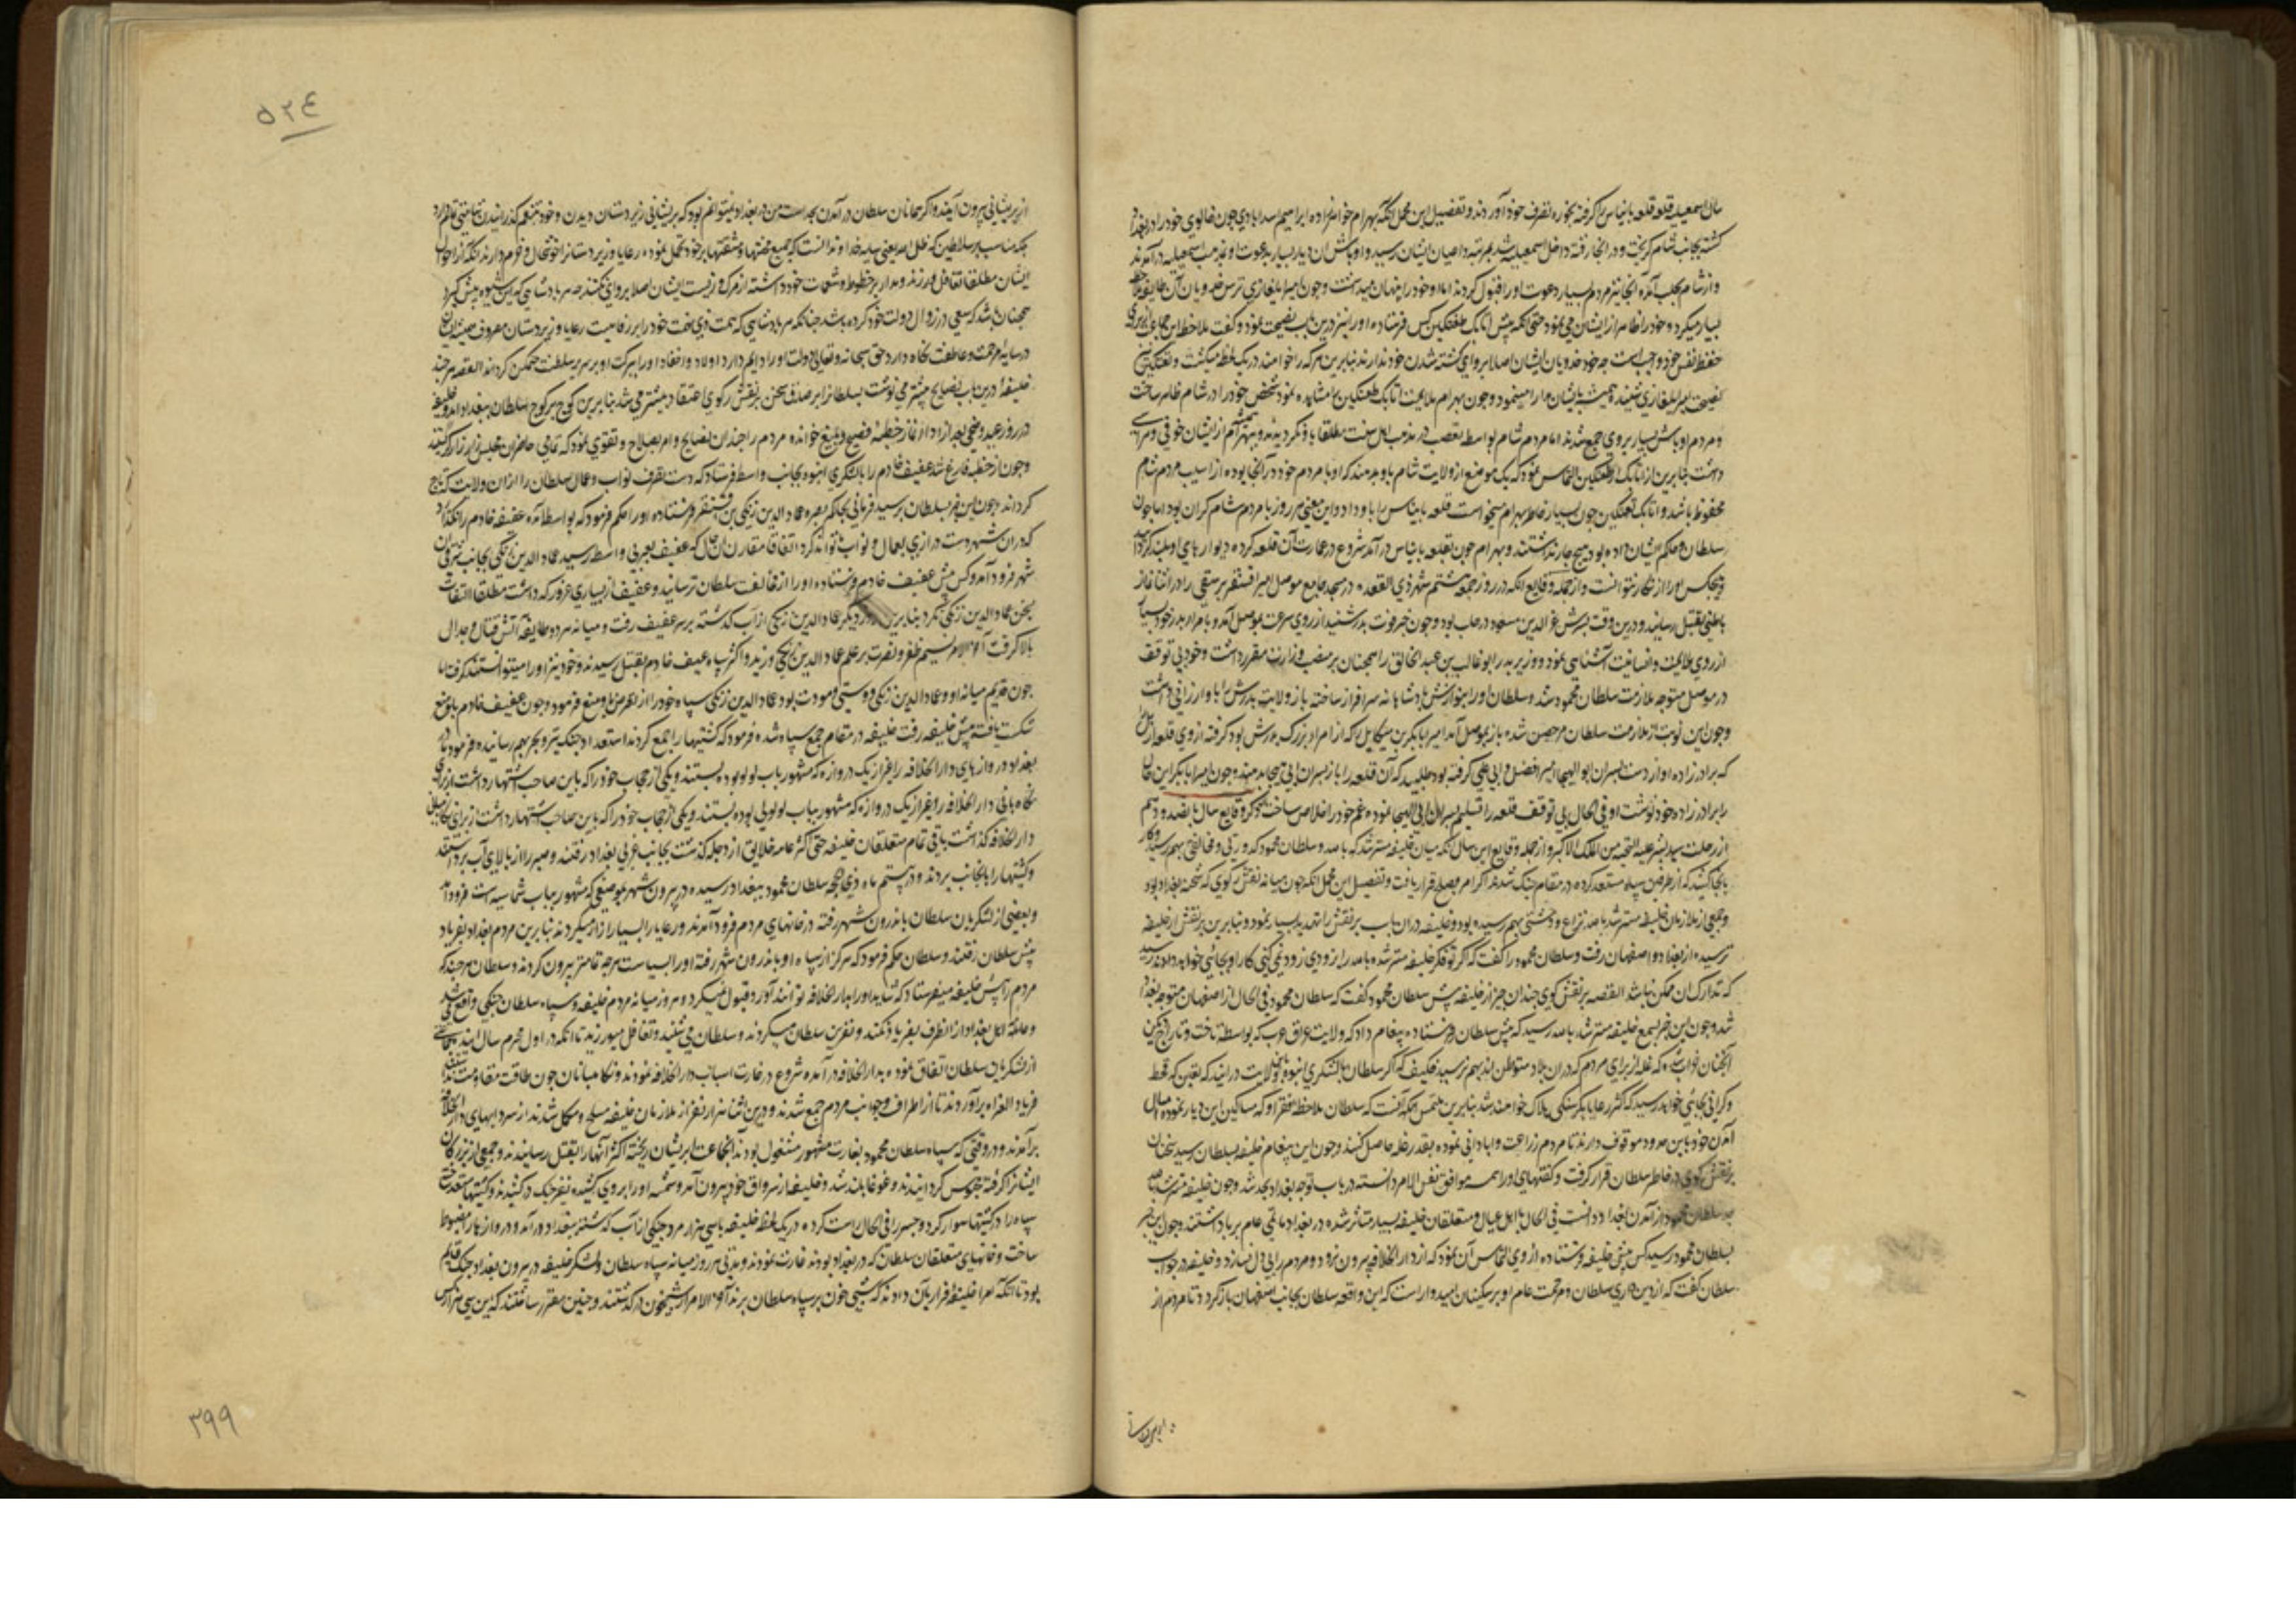 سال اسمعیلیه قلعه بانیاس را گرفته بحوزه تصرف خود آوردند و تفصیل این مجمل آنکه بهرام خواهرزاده ابراهیم اسدابادی چون خالوی خود را در بغداد
کشته بجانب شام گریخت و در آنجا رفته داخل اسمعیلیه شد بمرتبه داعیان ایشان رسید و اوباش آن دیار بسیار بدعوت او بمذهب اسمعیلیه درآمدند
و از شام بحلب آمده آنجا نیز مردم بسیار دعوت او را قبول کردند اما او خود را پنهان میداشت و چون امیر ایلغازی ترس فدویان آن طایفه
بسیار میکرد و خود را ظاهرا از ایشان می نمود حتی آنکه پیش اتابک طغتکین کس فرستاده او را نیز درین باب نصیحت نمود و گفت ملاحظه این جماعت از برای
حفظ نفس خود واجبست چه خود فدویان ایشان اصلا پروای کشته شدن خود ندارند بنابرین هر که را خواهند در یک لحظه میکشند و طغتکین نیز
نصیحت امیر ایلغازی شنیده همیشه بایشان مدارا مینمود و چون بهرام ملایمت اتابک طغتکین را مشاهده نمود شخص خود را در شام ظاهر ساخت
و مردم اوباش بسیار بر وی جمع شدند اما مردم شام بواسطه تعصب در مذهب اهل سنت مطلقا باو نگرویدند و بهرام از ایشان خوفی و هراسی
داشت بنابرین از اتابک طغتکین التماس نمود که یک موضع از ولایت شام باو بدهند که او با مردم خود در آنجا بوده از آسیب مردم شام
محفوظ باشد و اتابک طغتکین چون بسیار خاطر بهرام میخواست قلعه بانیاس را باو داد و این معنی هر روز با مردم شام گران بود اما چون
سلطان و حکم ایشان داده بود هیچ چاره نداشتند و بهرام چون بقلعه بانیاس درآمد شروع در عمارت آن قلعه کرده دیوارهای او بلند گردانید
و هیچکس او را انکار نتوانست و از جمله وقایع آنکه در روز جمعه هشتم شهر ذی القعده در مسجد جامع موصل امیر اقسنقر برسقی را در اثنا نماز
باطنی بقتل رسانید و درین وقت پسرش عز الدین مسعود در حلب بود و چون خبر فوت پدر شنید از روی سرعت بموصل آمد و با امرا پدر خود بسیار
از روی ملایمت و انسانیت آشنایی نمود و وزیر پدر ابو غالب بن عبد الخالق را همچنان بر منصب وزارت مقرر داشت و خود بی توقف
در موصل متوجه ملازمت سلطان محمود شد و سلطان او را بنوازش پادشاهانه سرافراز ساخته باز ولایت پدرش را باو ارزانی داشت
و چون این نوبت از ملازمت سلطان مرخص شده باز بموصل آمد امیر ابابکر بن میکاییل را که از امراء بزرگ پدرش بود گرفته از وی قلعه اربل
که برادرزاده او از دست پسران ابو الهیجا امیر افضل و ابی علی گرفته بود طلبید که آن قلعه را باز بپسران ابی الهیجا بدهند و چون امیر ابابکر این حال
را ببرادرزاده خود نوشت او فی الحال بی توقف قلعه را تسلیم پسران ابی الهیجا نموده عم خود را خلاص ساخت ذکر وقایع سال پانصد و دهم
از رحلت سید البشر علیه التحیه من الملک الاکبر و از جمله وقایع این سال آنکه میان خلیفه مسترشد بالله و سلطان محمود کدورتی و مخالفتی بهم رسید و کار
بآنجا کشید که از طرفین سپاه مستعد کرده در مقام جنگ شدند اما آخر امر بصلح قرار یافت و تفصیل این مجمل آنکه چون میانه یرنقش زکوی که شحنه بغداد بود
و جمعی از ملازمان خلیفه مسترشد بالله نزاع و وحشتی بهم رسیده بود و خلیفه در آن باب یرنقش را تهدید بسیار نموده بنابرین یرنقش از خلیفه
ترسیده از بغداد باصفهان رفت و سلطان محمود را گفت که اگر تو فکر خلیفه مسترشد بالله را از زودی زود نمی کنی کار او بجائی خواهد رسید
که تدارک آن ممکن نباشد القصه یرنقش زکوی چندان چیز از خلیفه پیش سلطان محمود گفت که سلطان محمود فی الحال از اصفهان متوجه بغداد
شد و چون این خبر بسمع خلیفه مسترشد بالله رسید کس پیش سلطان فرستاده پیغام داد که ولایت عراق عرب که بواسطه تاخت و تاراج
آنچنان خراب شده که غله از برای مردم که در آن بلاد متوطن اند بهم نرسید فکیف که اگر سلطان با لشکری انبوه باین ولایت درآیند که یقین که قحط
و گرانی بجائی خواهد رسید که اکثر رعایا بگرسنگی هلاک خواهند شد بنابرین ملتمس آنکه آنست که سلطان ملاحظه فقرا و مساکین این دیار نموده امسال
آمدن خود باین حدود موقوف دارند تا مردم زراعت و آبادانی نموده بقدر غله حاصل کنند و چون این پیغام خلیفه بسلطان رسید سخنان
یرنقش زکوی در خاطر سلطان قرار گرفت و گفتهای او را همه موافق نفس الامر دانسته در باب توجه بغداد بجد شد و چون خلیفه مسترشد بالله
جد سلطان محمود از آمدن بغداد دانست فی الحال با اهل عیال و متعلقان خلیفه بسیار متأثر شده در بغداد ماتمی عام برپا داشتند و چون این خبر
بسلطان محمود رسید کس پیش خلیفه فرستاده از وی التماس آن نمود که از دار الخلافه بیرون نرود و مردم را بی دل نسازد و خلیفه در جواب
سلطان گفت که از دین داری سلطان و مرحمت عام او بر مسکینان امیدوار است که این واقعه سلطان بجانب اصفهان بازگردد تا مردم از
۵۲۴
از پریشانی بیرون آیند و اگر چنانچه سلطان در آمدن بجد است من در بغداد نمیتوانم بود که پریشانی زیردستان دیدن و خود بتنعم گذرانیدن
چه مناسب بر سلاطین که ظل الله یعنی سایه خداوند آنست که جمیع محنتها و مشقتها بر خود تحمل نموده رعایا و زیردستان را خوشحال و خرم دارند نه آنکه از احوال
ایشان مطلقا تغافل ورزند و مدار بر حظوظ و شهوات خود داشته از مرگ و زیست ایشان اصلا پروای نکنند چه هر پادشاهی که این شیوه پیش گیرد
همچنان باشد که سعی در زوال دولت خود کرده باشد چنانکه هر پادشاهی که همت ذی بخت خود را بر رفاهیت رعایا و زیردستان مصروف
در سایه مرحمت و عاطفت نگاه دارد حق سبحانه و تعالی دولت او را دایم دارد اولاد و احفاد او را ببرکت او بر سریر سلطنت متمکن گرداند القصه هر چند
خلیفه درین باب نصایح بیشتر می نوشت سلطان را بر صدق سخن یرنقش زکوی اعتقاد بیشتر می شد بنابرین کوچ بر کوچ سلطان ببغداد آمد و خلیفه
در روز عید اضحی بعد از ادای نماز خطبه فصیح و بلیغ خوانده مردم را چندان نصایح و امر بصلاح و تقوی نمود که تمامی حاضران مجلس زار زار گریستند
و چون از خطبه فارغ شد عفیف خادم را با لشکری انبوه بجانب واسط فرستاد که دست تصرف نواب و عمال سلطان را از آن ولایت کوتاه
گرداند و چون این خبر بسلطان رسید فرمانی بحاکم بصره عماد الدین زنگی بن اقسنقر فرستاده او را حکم فرمود که بواسط آمده عفیف خادم را نگذارد
که در آن شهر دست درازی بعمال و نواب تواند کرد اتفاقا مقارن آن حال که عفیف بغربی واسط رسید عماد الدین زنگی بجانب شرقی آن
شهر فرود آمد و کس پیش عفیف خادم فرستاده او را از مخالفت سلطان ترسانید و عفیف از بسیاری غرور که داشت مطلقا التفات
بسخن عماد الدین زنگی نکرد بنابرین روز دیگر عماد الدین زنگی از آب گذشته بر سر عفیف رفت و میانه هر دو طایفه آتش قتال و جدال
بالا گرفت آخر الامر نسیم ظفر و نصرت بر علم عماد الدین زنگی وزید و اکثر سپاه عفیف خادم بقتل رسیدند و خود نیز او را میتوانستند گرفت اما
چون قدیم میانه او و عماد الدین زنگی دوستی و مودت بود عماد الدین زنگی سپاه خود را از تعرض باو منع فرمود و چون عفیف خادم باین وضع
شکست یافته پیش خلیفه رفت خلیفه در مقام جمع سپاه شده فرمود که کشتیها را جمع کردند استعداد جنگ بر و بحر بهم رسانیده فرمود تا در
بغداد دروازهای دار الخلافه را بغیر از یک دروازه که مشهور بباب لولو بود ببستند و یکی از حجاب خود را که باین صاحب اشتهار داشت از برای
نگاهبانی دار الخلافه را بغیر از یک دروازه که مشهور بباب لولوئی بوده ببستند و یکی از حجاب خود را که باین صاحب اشتهار داشت از برای نگاهبانی
دار الخلافه گذاشت باقی تمام متعلقان خلیفه حتی اکثر عامه خلایق از دجله گذشته بجانب غربی بغداد رفتند و جسر را از بالای آب برداشتند
و کشتیها را بآنجانب بردند و در بیستم ماه ذی الحجه سلطان محمود ببغداد رسیده در بیرون شهر بموضعی که مشهور بباب شماسیه است فرود آمد
و بعضی از لشکریان سلطان باندرون شهر رفته در خانهای مردم فرود آمدند و رعایا را بسیار آزار میکردند بنابرین مردم بغداد بفریاد
پیش سلطان رفتند و سلطان حکم فرمود که هر کس از سپاه او باندرون شهر رفته او را بسیاست هر چه تمامتر بیرون کردند و سلطان هر چند که
مردم را پیش خلیفه میفرستاد که شاید او را بدار الخلافه توانند آورد قبول نمیکرد و هر روز میانه مردم خلیفه و سپاه سلطان جنگی واقع می شد
و عامه اهل بغداد از آنطرف بفریاد می آمدند و نفرین سلطان میکردند و سلطان می شنید و تغافل میورزید تا آنکه در اول محرم سال آینده جماعتی
از لشکریان سلطان اتفاق نموده بدار الخلافه درآمده شروع در غارت اسباب دار الخلافه نمودند و نگاهبانان چون طاقت مقاومت نداشتند
فریاد الغزاه برآوردند تا از اطراف و جوانب مردم جمع شدند و درین اثنا هزار نفر از ملازمان خلیفه مسلح و مکمل شدند از سردابهای دار الخلافه
برآمدند و در وقتی که سپاه سلطان محمود بغارت مشهور مشغول بودند آنجماعت بر ایشان ریخته اکثر آنها را بقتل رسانیدند و جمعی از بزرگان
ایشان را گرفته محبوس گردانیدند و غوغا بلند شد و خلیفه از سرواق خود بیرون آمد و شمسه او را بر وی کشیده نفیر جنگ درکشیدند و کشتیها مستعد
سپاه را در کشتیها سوار کرد و جسر را فی الحال راست کرده در یک لحظ خلیفه با سی هزار مرد جنگی از آب گذشته ببغداد درآمد و دروازها را مضبوط
ساخت و خانهای متعلقان سلطان که در بغداد بودند غارت نمودند و مدتی هر روز میانه سپاه سلطان و لشکر خلیفه در بیرون بغداد جنگ قایم
بود تا آنکه امرا خلیفه قرار بآن دادند که شبی شبیخون بر سپاه سلطان برند آخر الامر از شبیخون درگذشتند و چنین مقرر ساختند که این سی هزار کس
۳۹۹